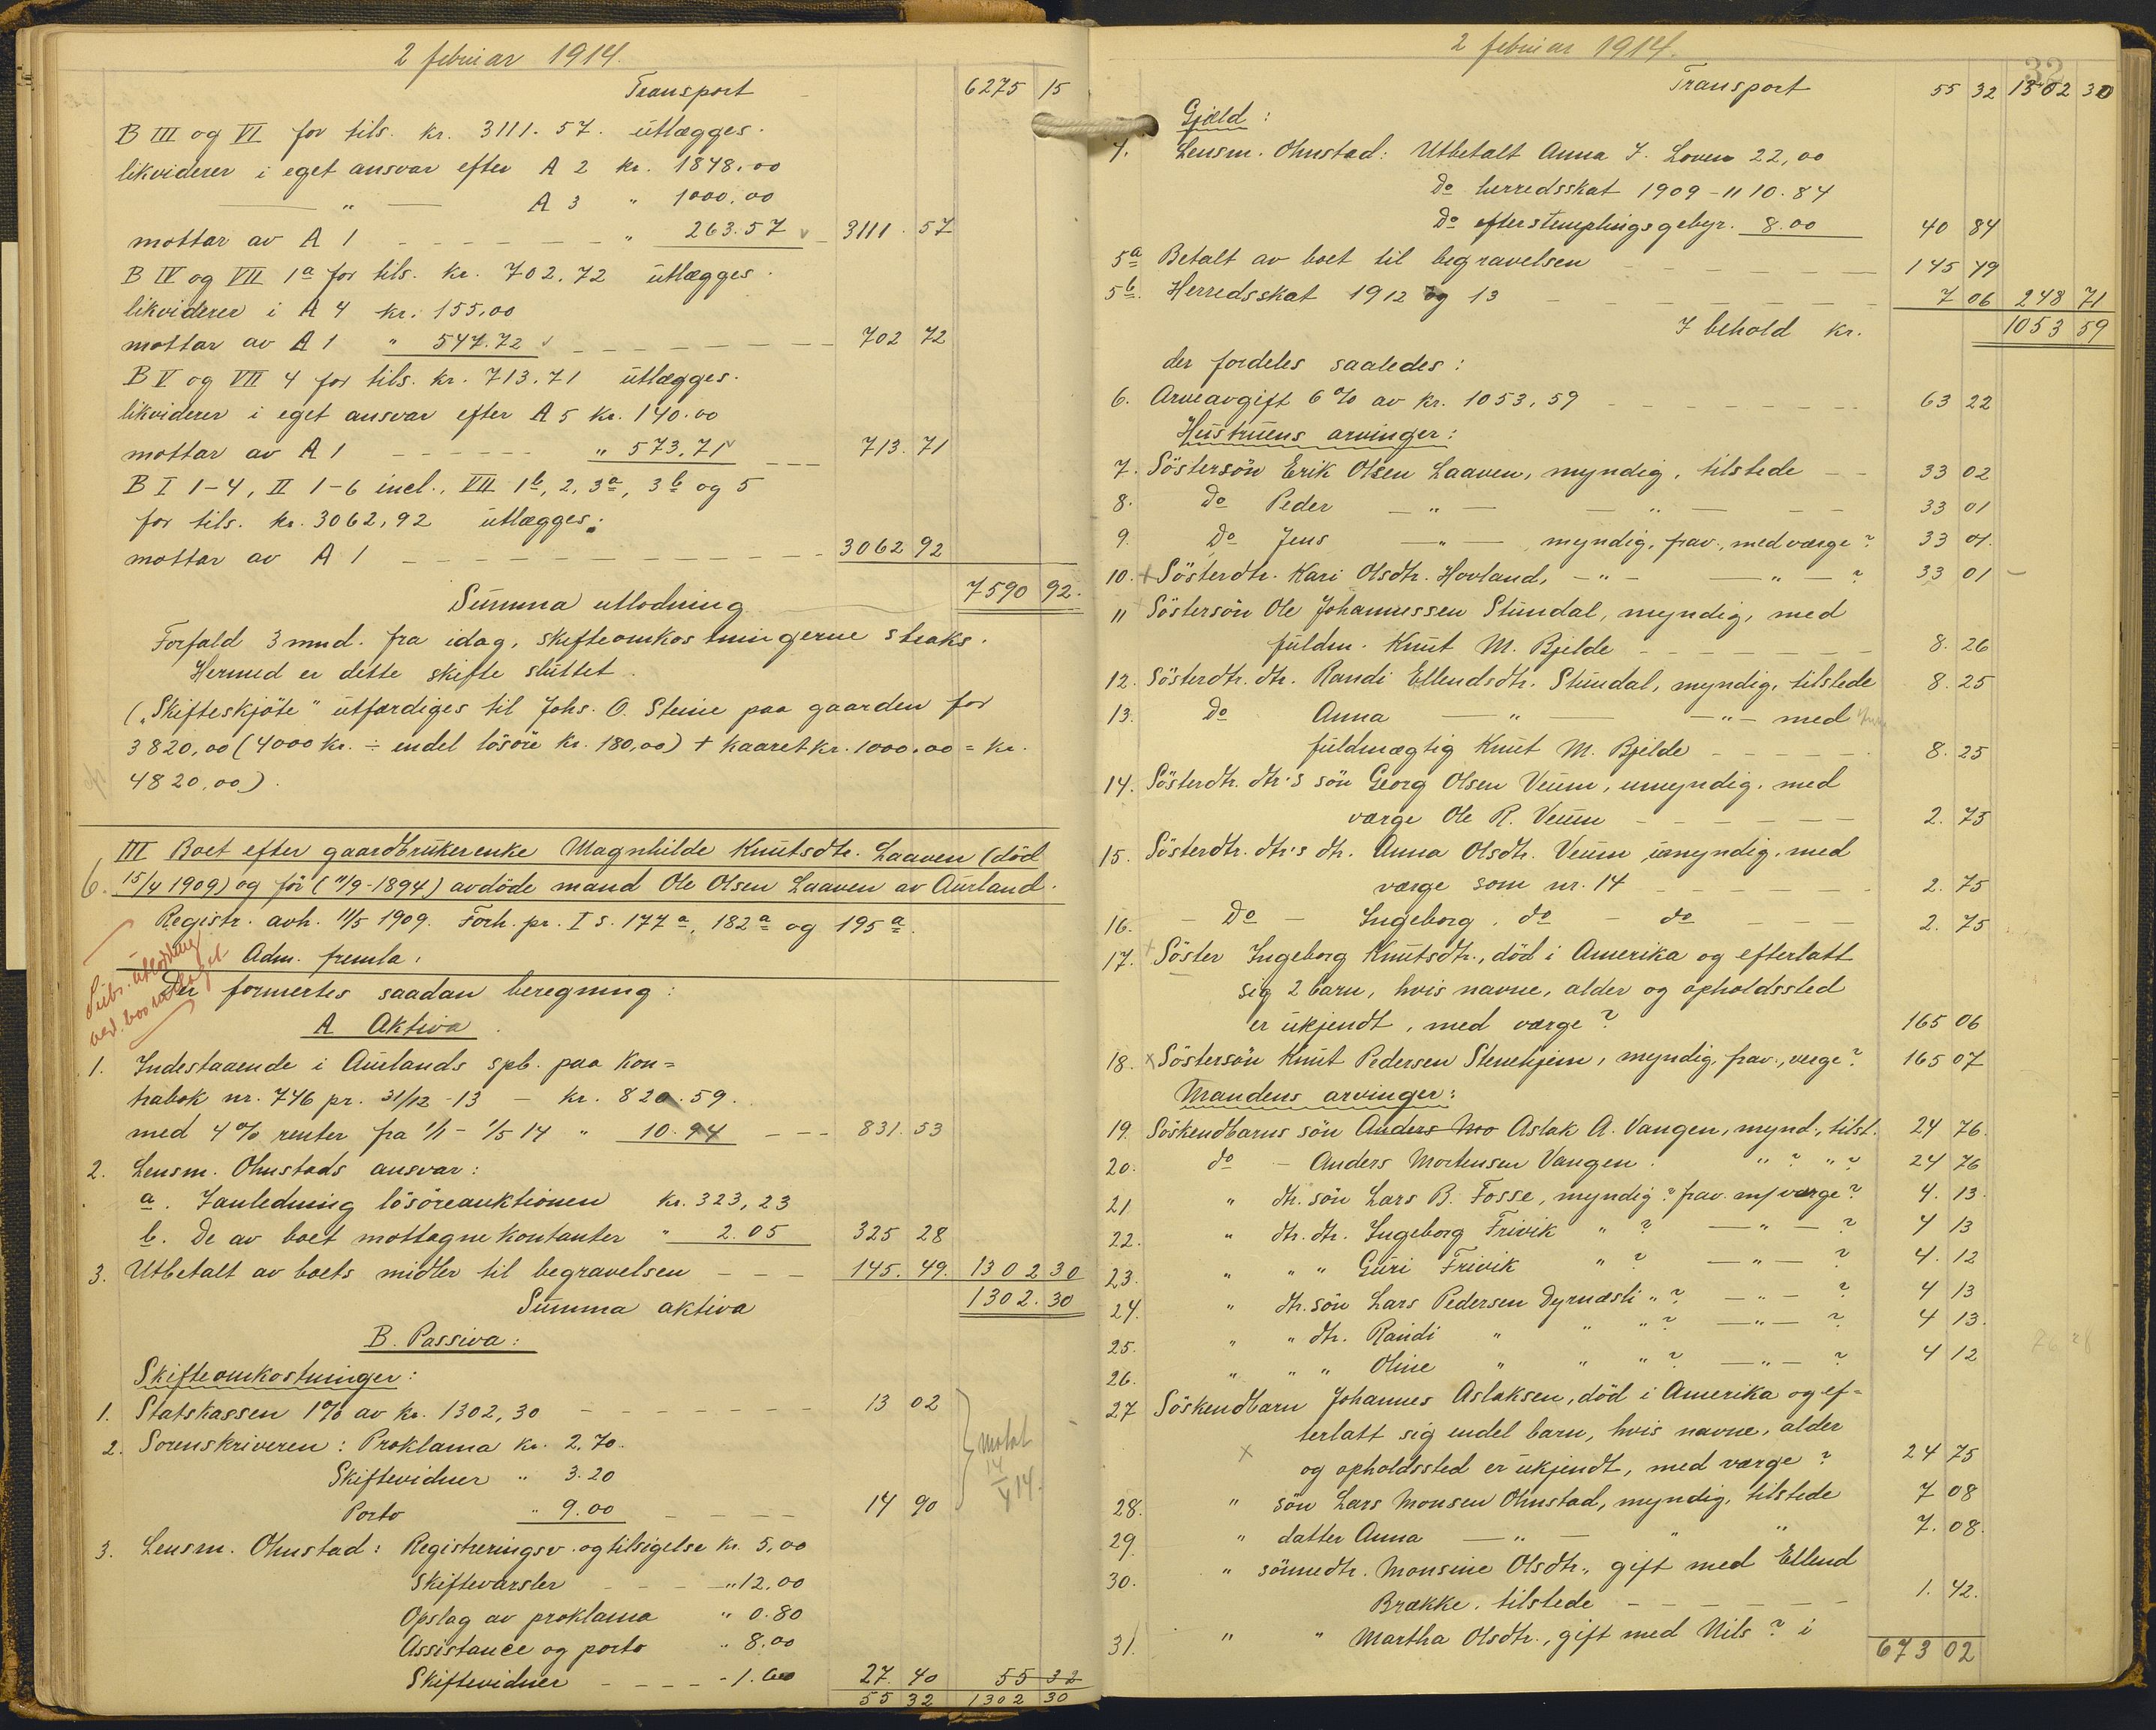 2 februar 1914.
Transport 6275 15
B III og VI for tils. kr. 3111.57. utlægges.
likviderer i eget ansvar efter A 2 kr. 1848,00
— " — A 3 " 1000,00
mottar av A 1 - - - " 263.57 3111.57
B IV og VII 1a for tils. kr. 702,72 utlægges.
likviderer i A 4 kr. 155,00
mottar av A 1 " 547.72 - - - 702 72
B V og VII 4 for tils. kr. 713.71 utlægges.
likviderer i eget ansvar efter A 5 kr. 140.00
mottar av A 1 - - - " 573,71 - - - 713.71
B I 1-4, II 1-6 incl., VII 1b, 2, 3a, 3b og 5
for tils. kr. 3062,92 utlægges:
mottar av A 1 - - - 3062 92
Summa utlodning 7590 92.
Forfald 3 mnd. fra idag, skifteomkostningerne straks.
Hermed er dette skifte sluttet.
("Skifteskjöte" utfærdiges til Johs. O. Steine paa gaarden for
3820,00 (4000 kr. ÷ endel lösöre kr. 180,00) + kaaret kr. 1000,00 = kr.
4820,00).
6. III Boet efter gaardbrukerenke Magnhilde Knutsdtr. Laaven (död
15/4 1909) og för (11/9-1894) avdöde mand Ole Olsen Laaven av Aurland.
Registr. avh. 11/5 1909. Forh. pr. I s. 177a, 182a og 195a.
Adm. fremla:
Der formertes saadan beregning:
A Aktiva.
1. Indestaaende i Aurlands spb. paa kon=
trabok nr. 746 pr. 31/12-13 - kr. 820.59.
med 4% renter fra 1/1 - 1/5 14 " 10.94 - - - 831.53
2. Lensm. Ohnstads ansvar:
a. I anledning lösöreauktionen kr. 323,23
b. De av boet mottagne kontanter " 2.05 325 28
3. Utbetalt av boets midler til begravelsen - - - 145.49. 1302 30
Summa aktiva 1302.30
B. Passiva:
Skifteomkostninger:
1. Statskassen 1% av kr. 1302,30 - - - 13 02
2. Sorenskriveren: Proklama kr. 2.70.
Skiftevidner " 3.20
Porto " 9.00 - - - 14 90
3. Lensm. Ohnstad: Registreringsv. og tilsigelse kr. 5,00
Skiftevarsler - - - " 12.00
Opslag av proklama " 0.80
Assistance og porto " 8.00
Skiftevidner - - - - 1.60 27.40 55 32
55 32 1302 30
2 februar 1914.
32
Transport 55 32 1302 30
Gjæld:
4. Lensm. Ohnstad: Utbetalt Anna J. Loven 22,00
Do herredsskat 1909-11 10.84
Do efterstemplingsgebyr. 8.00 40 84
5a Betalt av boet til begravelsen - - - 145 49
5b. Herredsskat 1912 og 13 - - - 7 06 248 71
I behold kr. 1053 59
der fordeles saaledes:
6. Arveavgift 6% av kr. 1053,59 - - - 63 22
Hustruens arvinger:
7. Söstersön Erik Olsen Laaven, myndig, tilstede - - 33 02
8. Do Peder — " — — " — - - 33 01
9. Do Jens — " — myndig, frav., med værge? 33 01.
10. Sösterdtr. Kari Olsdtr. Hovland, - " - — " — ? 33 01
11 Söstersön Ole Johannessen Stundal, myndig, med
fuldm. Knut M. Bjelde - - - 8.26
12. Sösterdtr. dtr. Randi Ellendsdtr. Stundal, myndig, tilstede 8.25
13. Do Anna — " — - " - med
fuldmægtig Knut M. Bjelde - - - 8.25
14. Sösterdtr. dtr's sön Georg Olsen Veum, umyndig, med
værge Ole R. Veum - - - 2.75
15. Sösterdtr. dtr's dtr. Anna Olsdtr. Veum umyndig, med
værge som nr. 14 - - - 2.75
16. - Do - Ingeborg, do - do - - 2.75
17. Söster Ingeborg Knutsdtr., död i Amerika og efterlatt
sig 2 barn, hvis navne, alder og opholdssted
er ukjendt, med værge? 165 06
18. Söstersön Knut Pedersen Stenehjem, myndig, frav., verge? 165 07
Mandens arvinger:
19. Söskendbarns sön Anders Mo Aslak A. Vangen, mynd., tilst. 24 76.
20. do - Anders Mortensen Vangen. " ? " ? 24 76
21 " dtr. sön Lars B. Fosse, myndig? frav. m/ værge? 4.13.
22. " dtr. dtr. Ingeborg Frivik " ? — " — ? 4 13
23. " " " Guri Frivik " ? — " — ? 4.12
24. " dtr. sön Lars Pedersen Dyrnæsli " ? — " — ? 4 13
25. " " dtr. Randi " " " ? — " — ? 4 13.
26. " " " Oline " " " ? — " — ? 4 12
27 Söskendbarn Johannes Aslaksen, död i Amerika og ef=
terlatt sig endel barn, hvis navne, alder
og opholdssted er ukjendt, med værge? 24 75
28. " sön Lars Monsen Ohnstad, myndig, tilstede 7 08
29. " datter Anna — " — " " 7.08.
30. " sönnedtr. Monsine Olsdtr., gift med Ellend
Brække, tilstede - - - 1.42.
31. " " Martha Olsdtr., gift med Nils? i
673 02